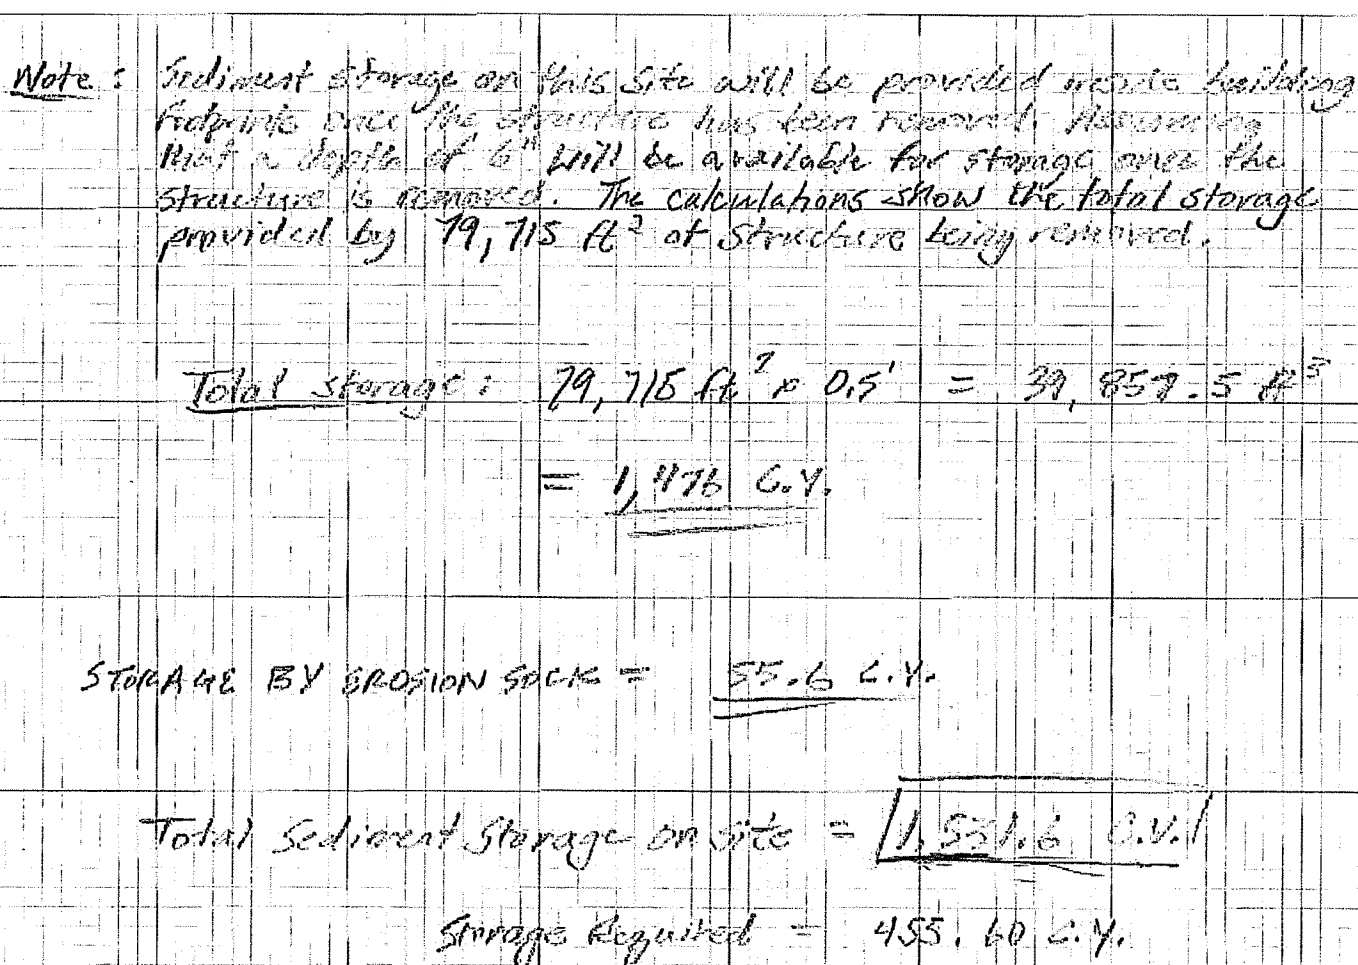 Note: Sediment storage on this site will be provided inside building
footprints once the structure has been removed. Assuming
that a depth of 6" will be available for storage once the
structure is removed. The calculations show the total storage
provided by 79,715 ft² of structure being removed.
Total storage: 79,715 ft² x 0.5' = 39,857.5 ft³
= 1,476 C.Y.
STORAGE BY EROSION SOCK = 55.6 C.Y.
Total Sediment Storage on site = 1,531.6 C.Y.
Storage Required = 455.60 C.Y.